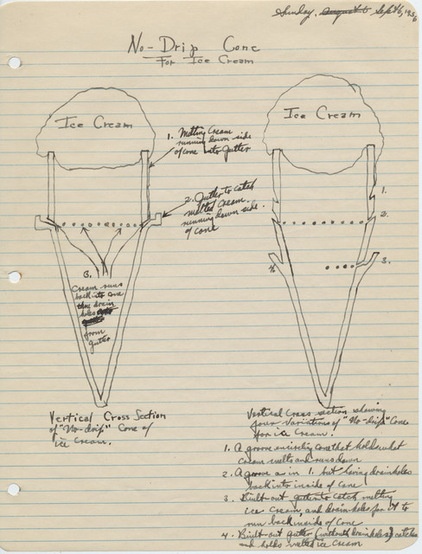 Sunday, August 6 Sept 6, 1936
No-Drip Cone
For Ice Cream
Ice Cream
1. Melting Cream
running down side
of cone into gutter
2. Gutter to catch
melted cream
running down side
of cone
3.
Cream runs
back into cone
thru drain
holes
from
gutter
Vertical Cross Section
of "No-drip" Cone of
ice cream.
Ice Cream
1.
2.
3.
4.
Vertical Cross section showing
four variations of "No-drip" Cone
for ice cream.
1. A groove encircling cone that holds what
cream melts and runs down
2. A groove as in 1. but having drain holes
back into inside of cone
3. Built-out gutter to catch melting
ice cream, and drain holes for it to
run back inside of cone
4. Built-out gutter (without drain holes) catches
and holds melted ice cream